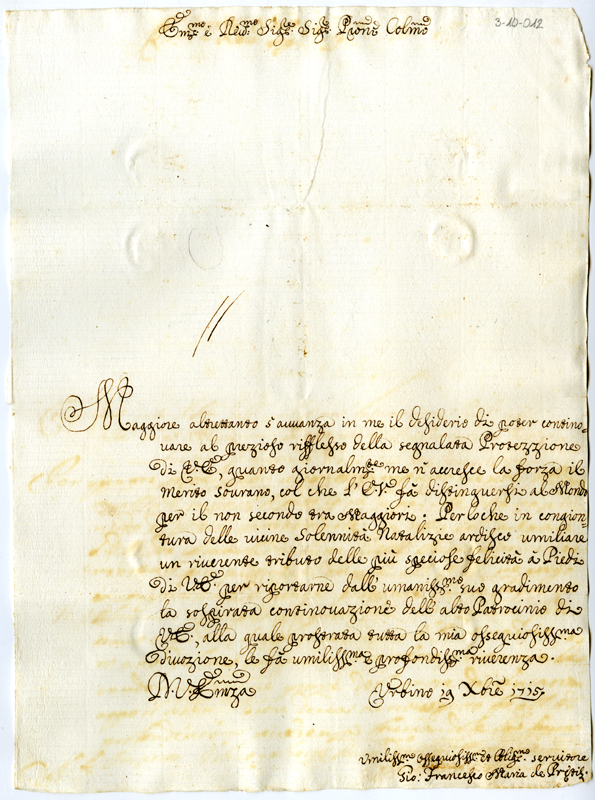 3-10-012
Em:mo e Rev:mo Sig:re Sig:re Pron:e Colmo
Maggiore altrettanto s'auuanza in me il desiderio di poter contino-
uare al prezioso rifflesso della segnalata Protezzione
di V.E., quanto giornalm:te me n'accresce la forza il
Merito sourano, col che l'E.V. fà distinguersi al Mondo
per il non secondo tra Maggiori. Perloche in congion-
tura delle uicine Solennità Natalizie ardisco umiliare
un riuerente tributo delle più speciose felicità à Piedi
di V.E. per riportarne dall'umaniss:mo suo gradimento
la sospirata continouazione dell'alto Patrocinio di
V.E., alla quale prostrata tutta la mia ossequiosiss:ma
diuozione, le fà umiliss:ma e profondiss:ma riuerenza.
Urbino 19 Xbre 1715.
Umiliss:mo ossequiosiss:mo et oblig:mo seruitore
Gio: Francesco Maria de